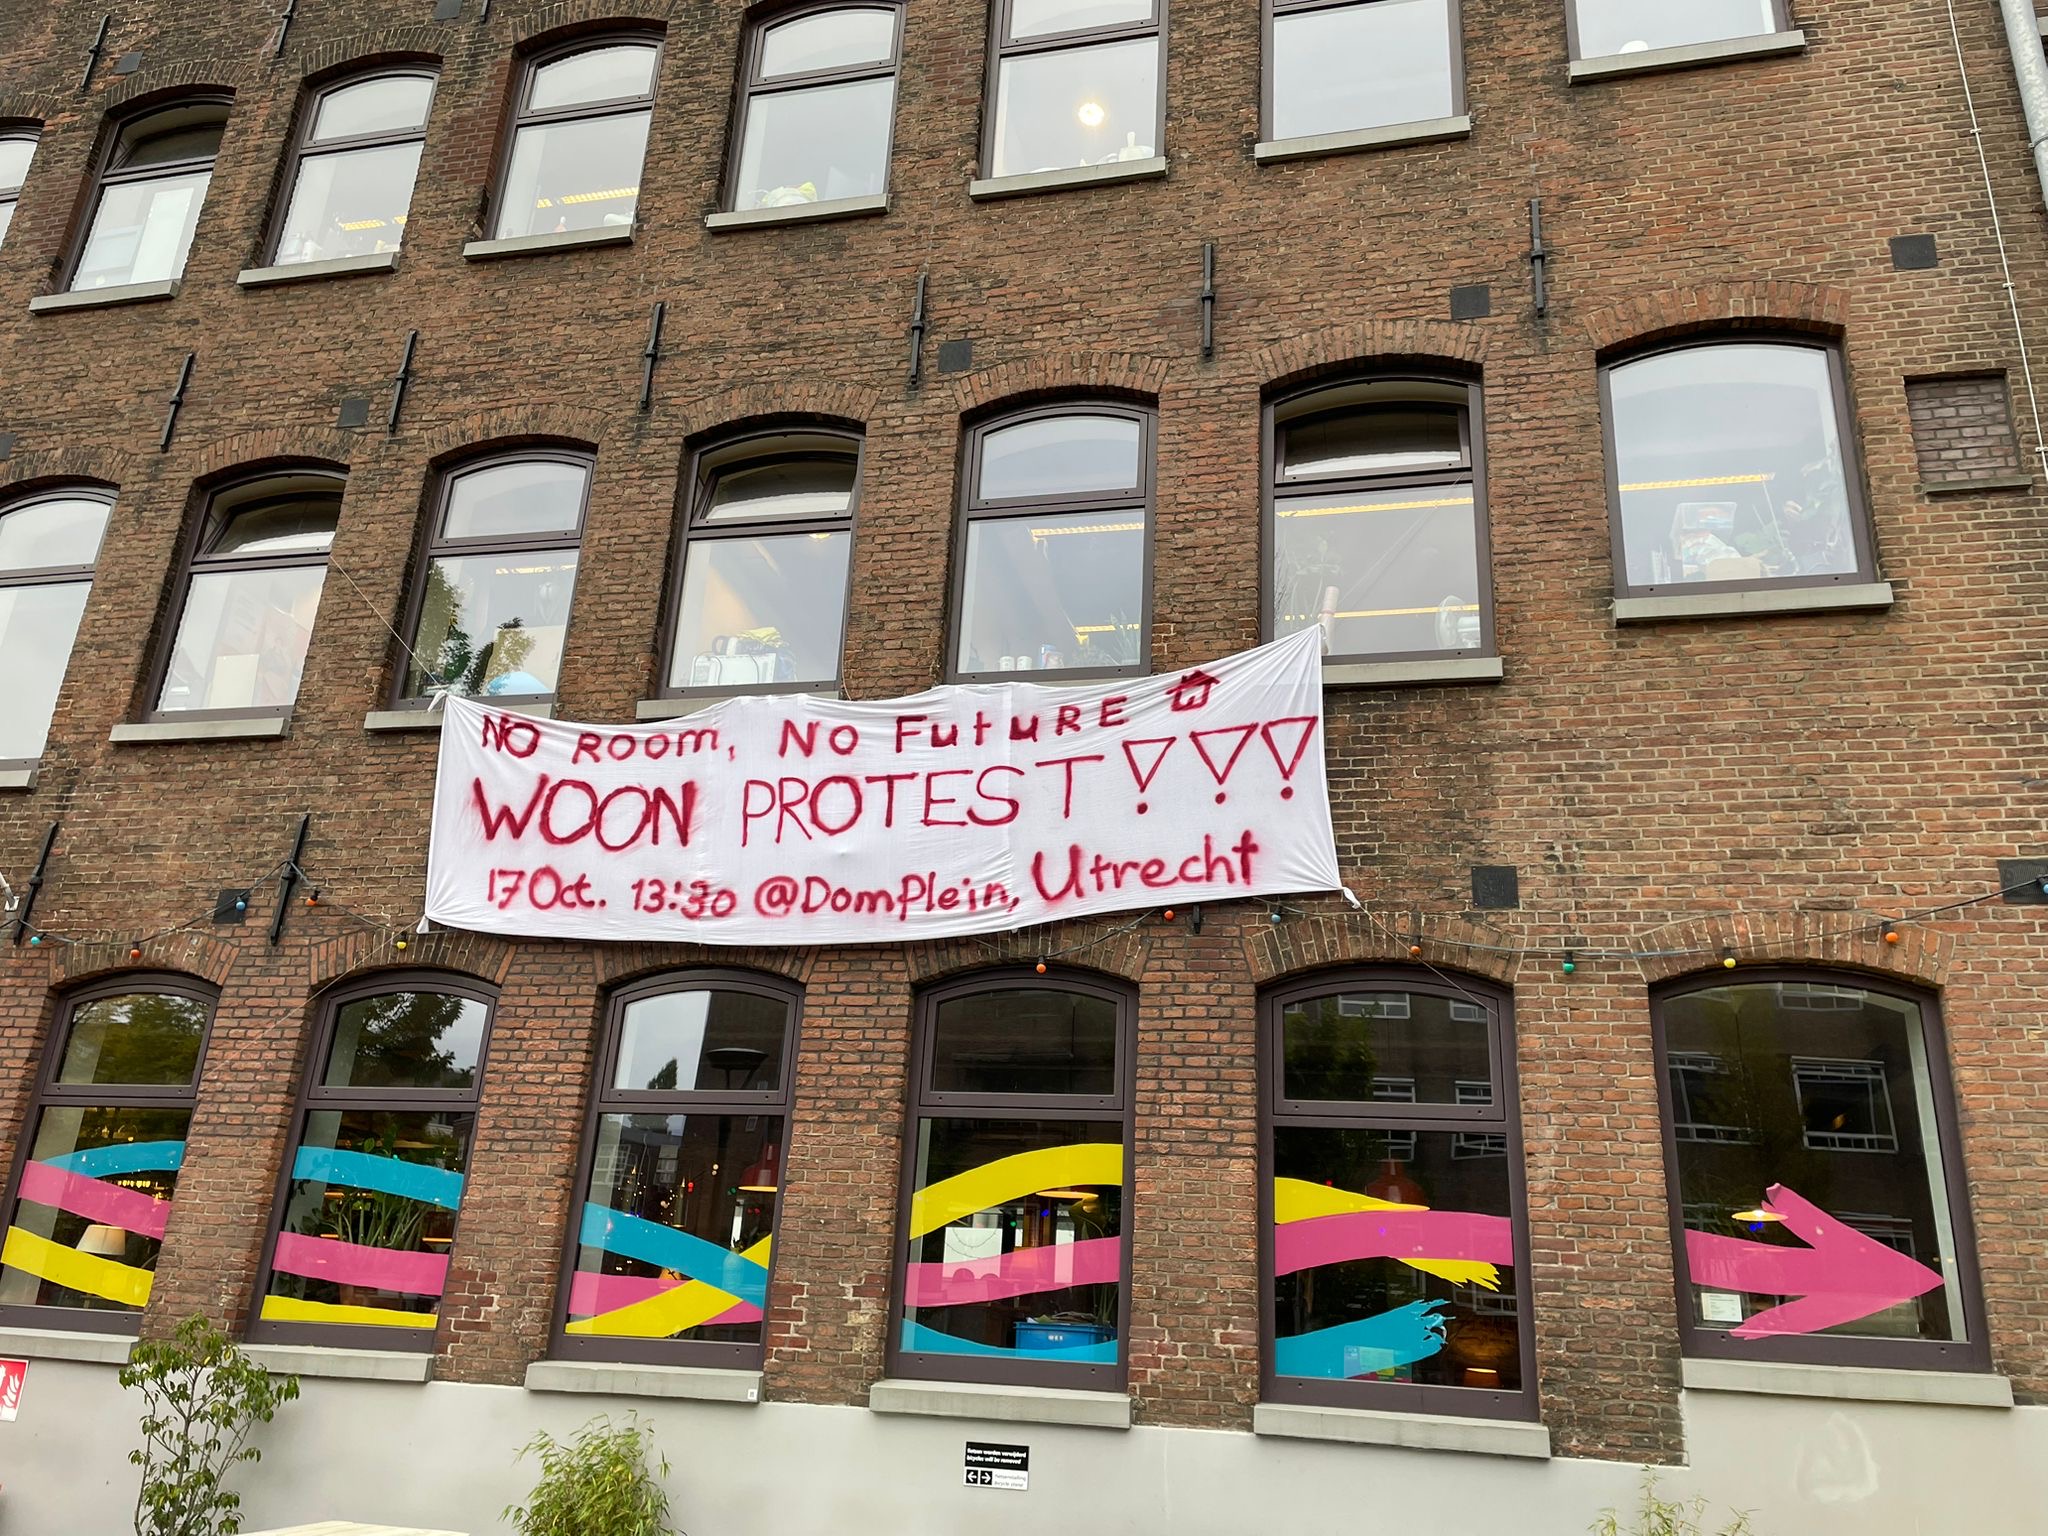 NO ROOM, NO FutuRE
WOON PROTEST!!!
17 Oct. 13:30 @Domplein, Utrecht
fietsen worden verwijderd
bicycles will be removed